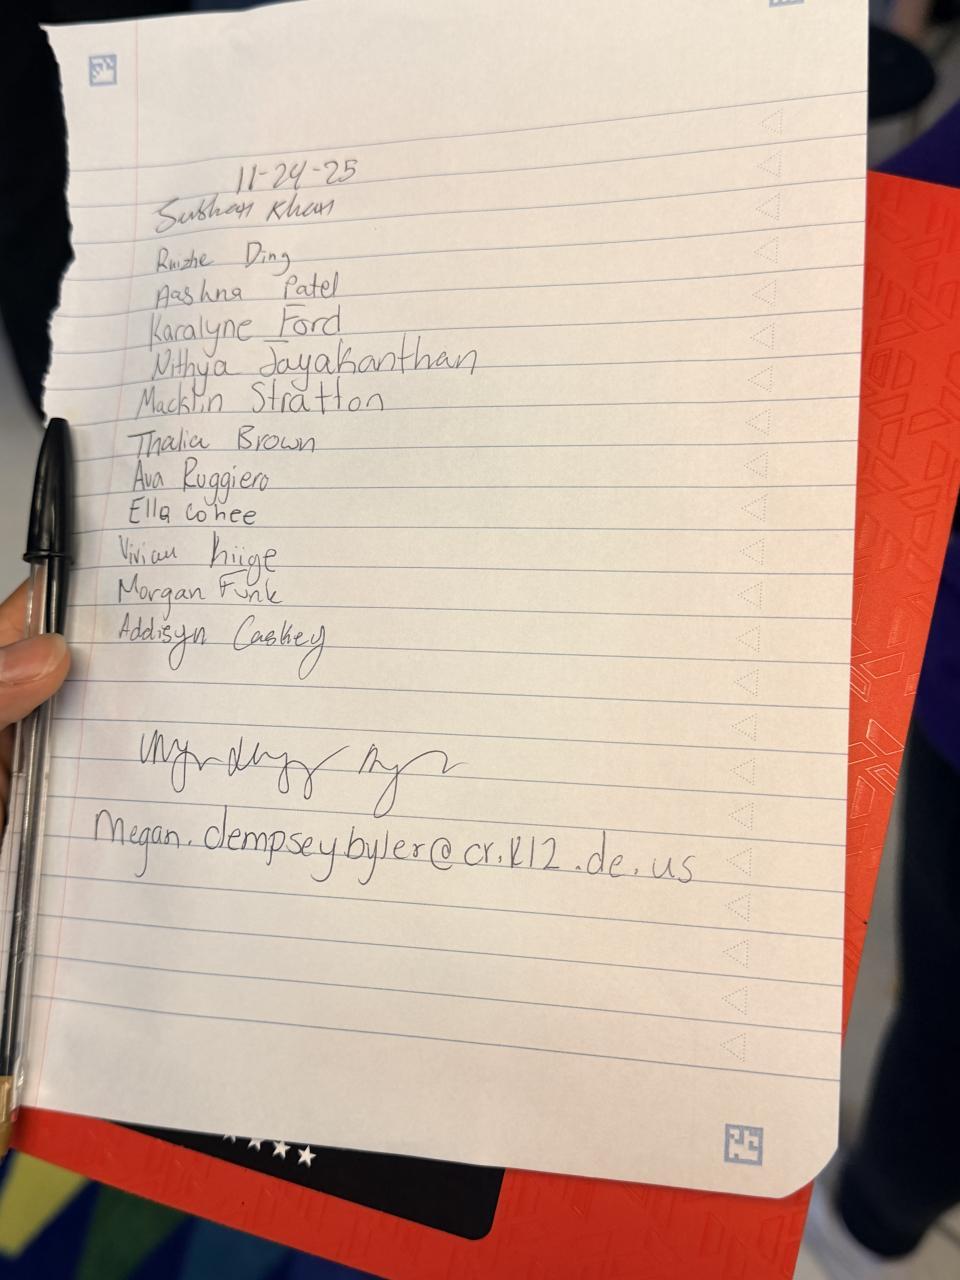 11-24-25
Subhan Khan
Ruizhe Ding
Aashna Patel
Karalyne Ford
Nithya Jayakanthan
Macklin Stratton
Thalia Brown
Ava Ruggiero
Ella Cohee
Vivian
Morgan Funk
Addisyn Caskey
Megan.dempseybyler@cr.k12.de.us